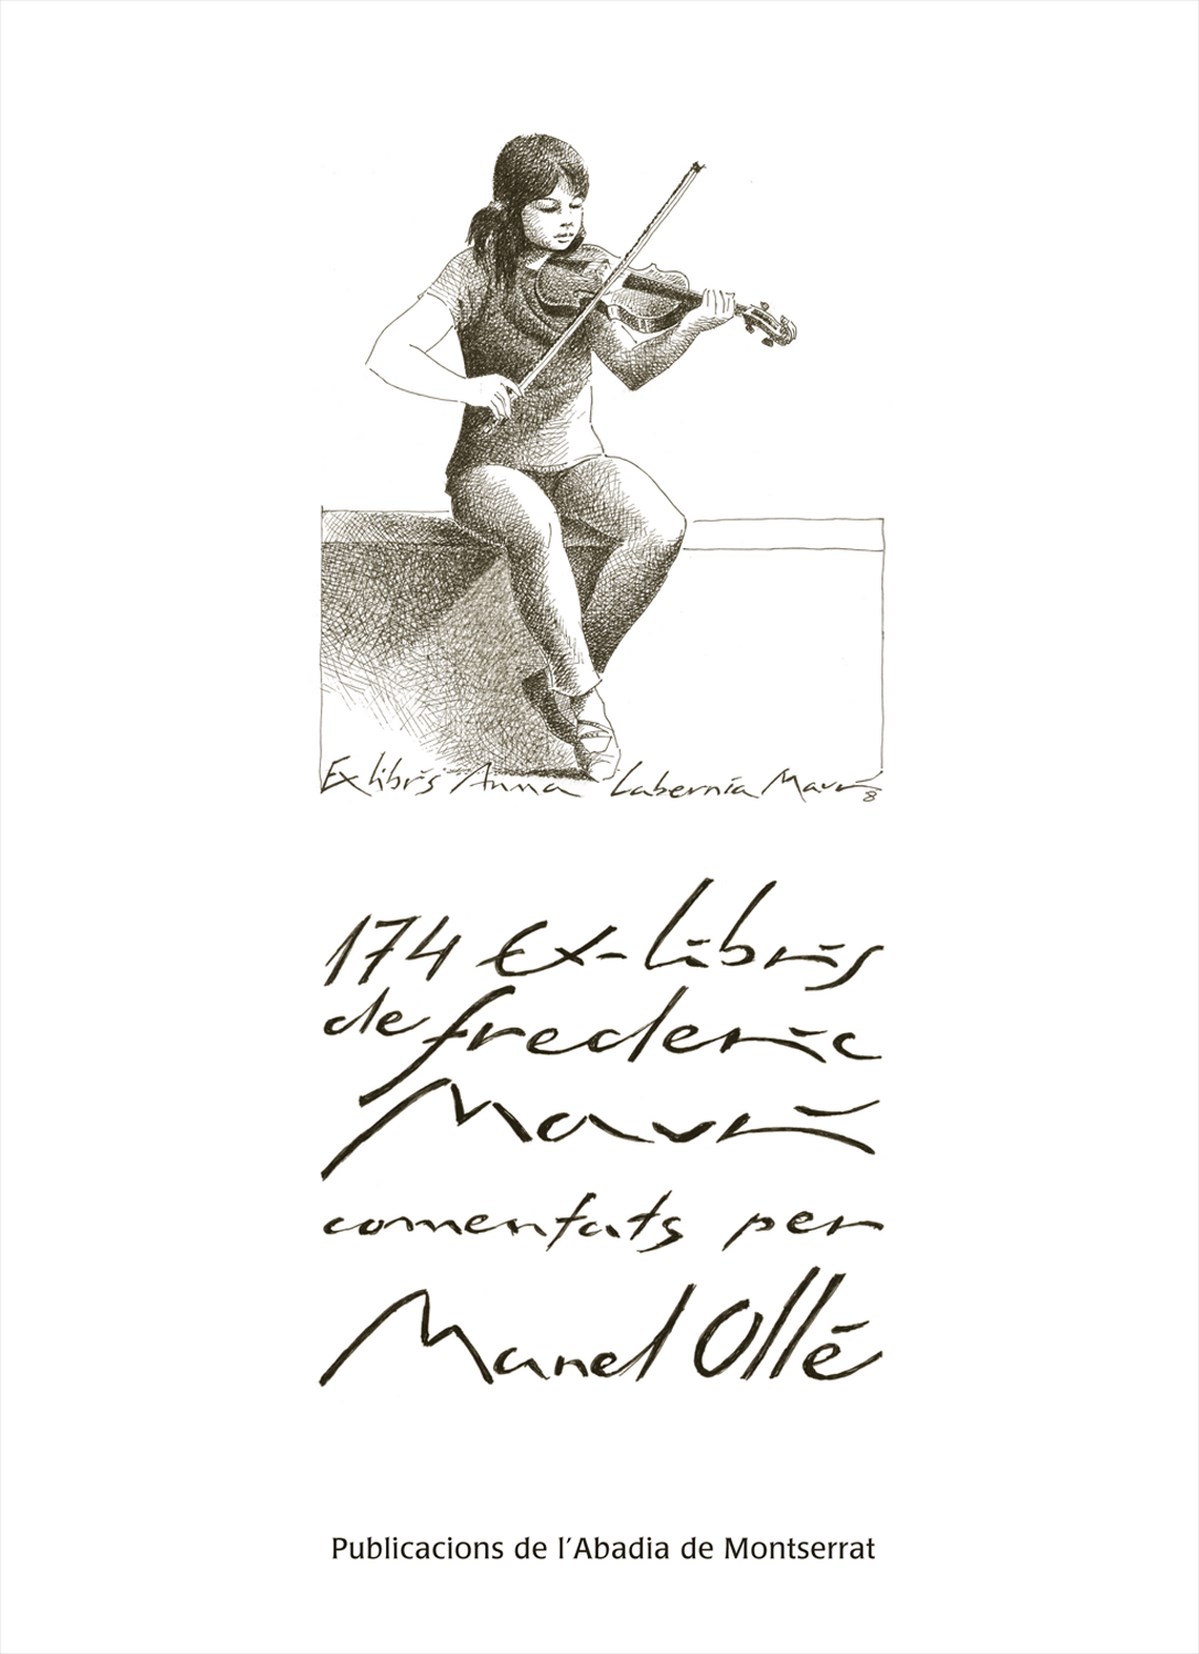 Ex libris Anna Labernia Maurí 8
174 Ex-libris
de frederic
Maurí
comentats per
Manel Ollé
Publicacions de l'Abadia de Montserrat